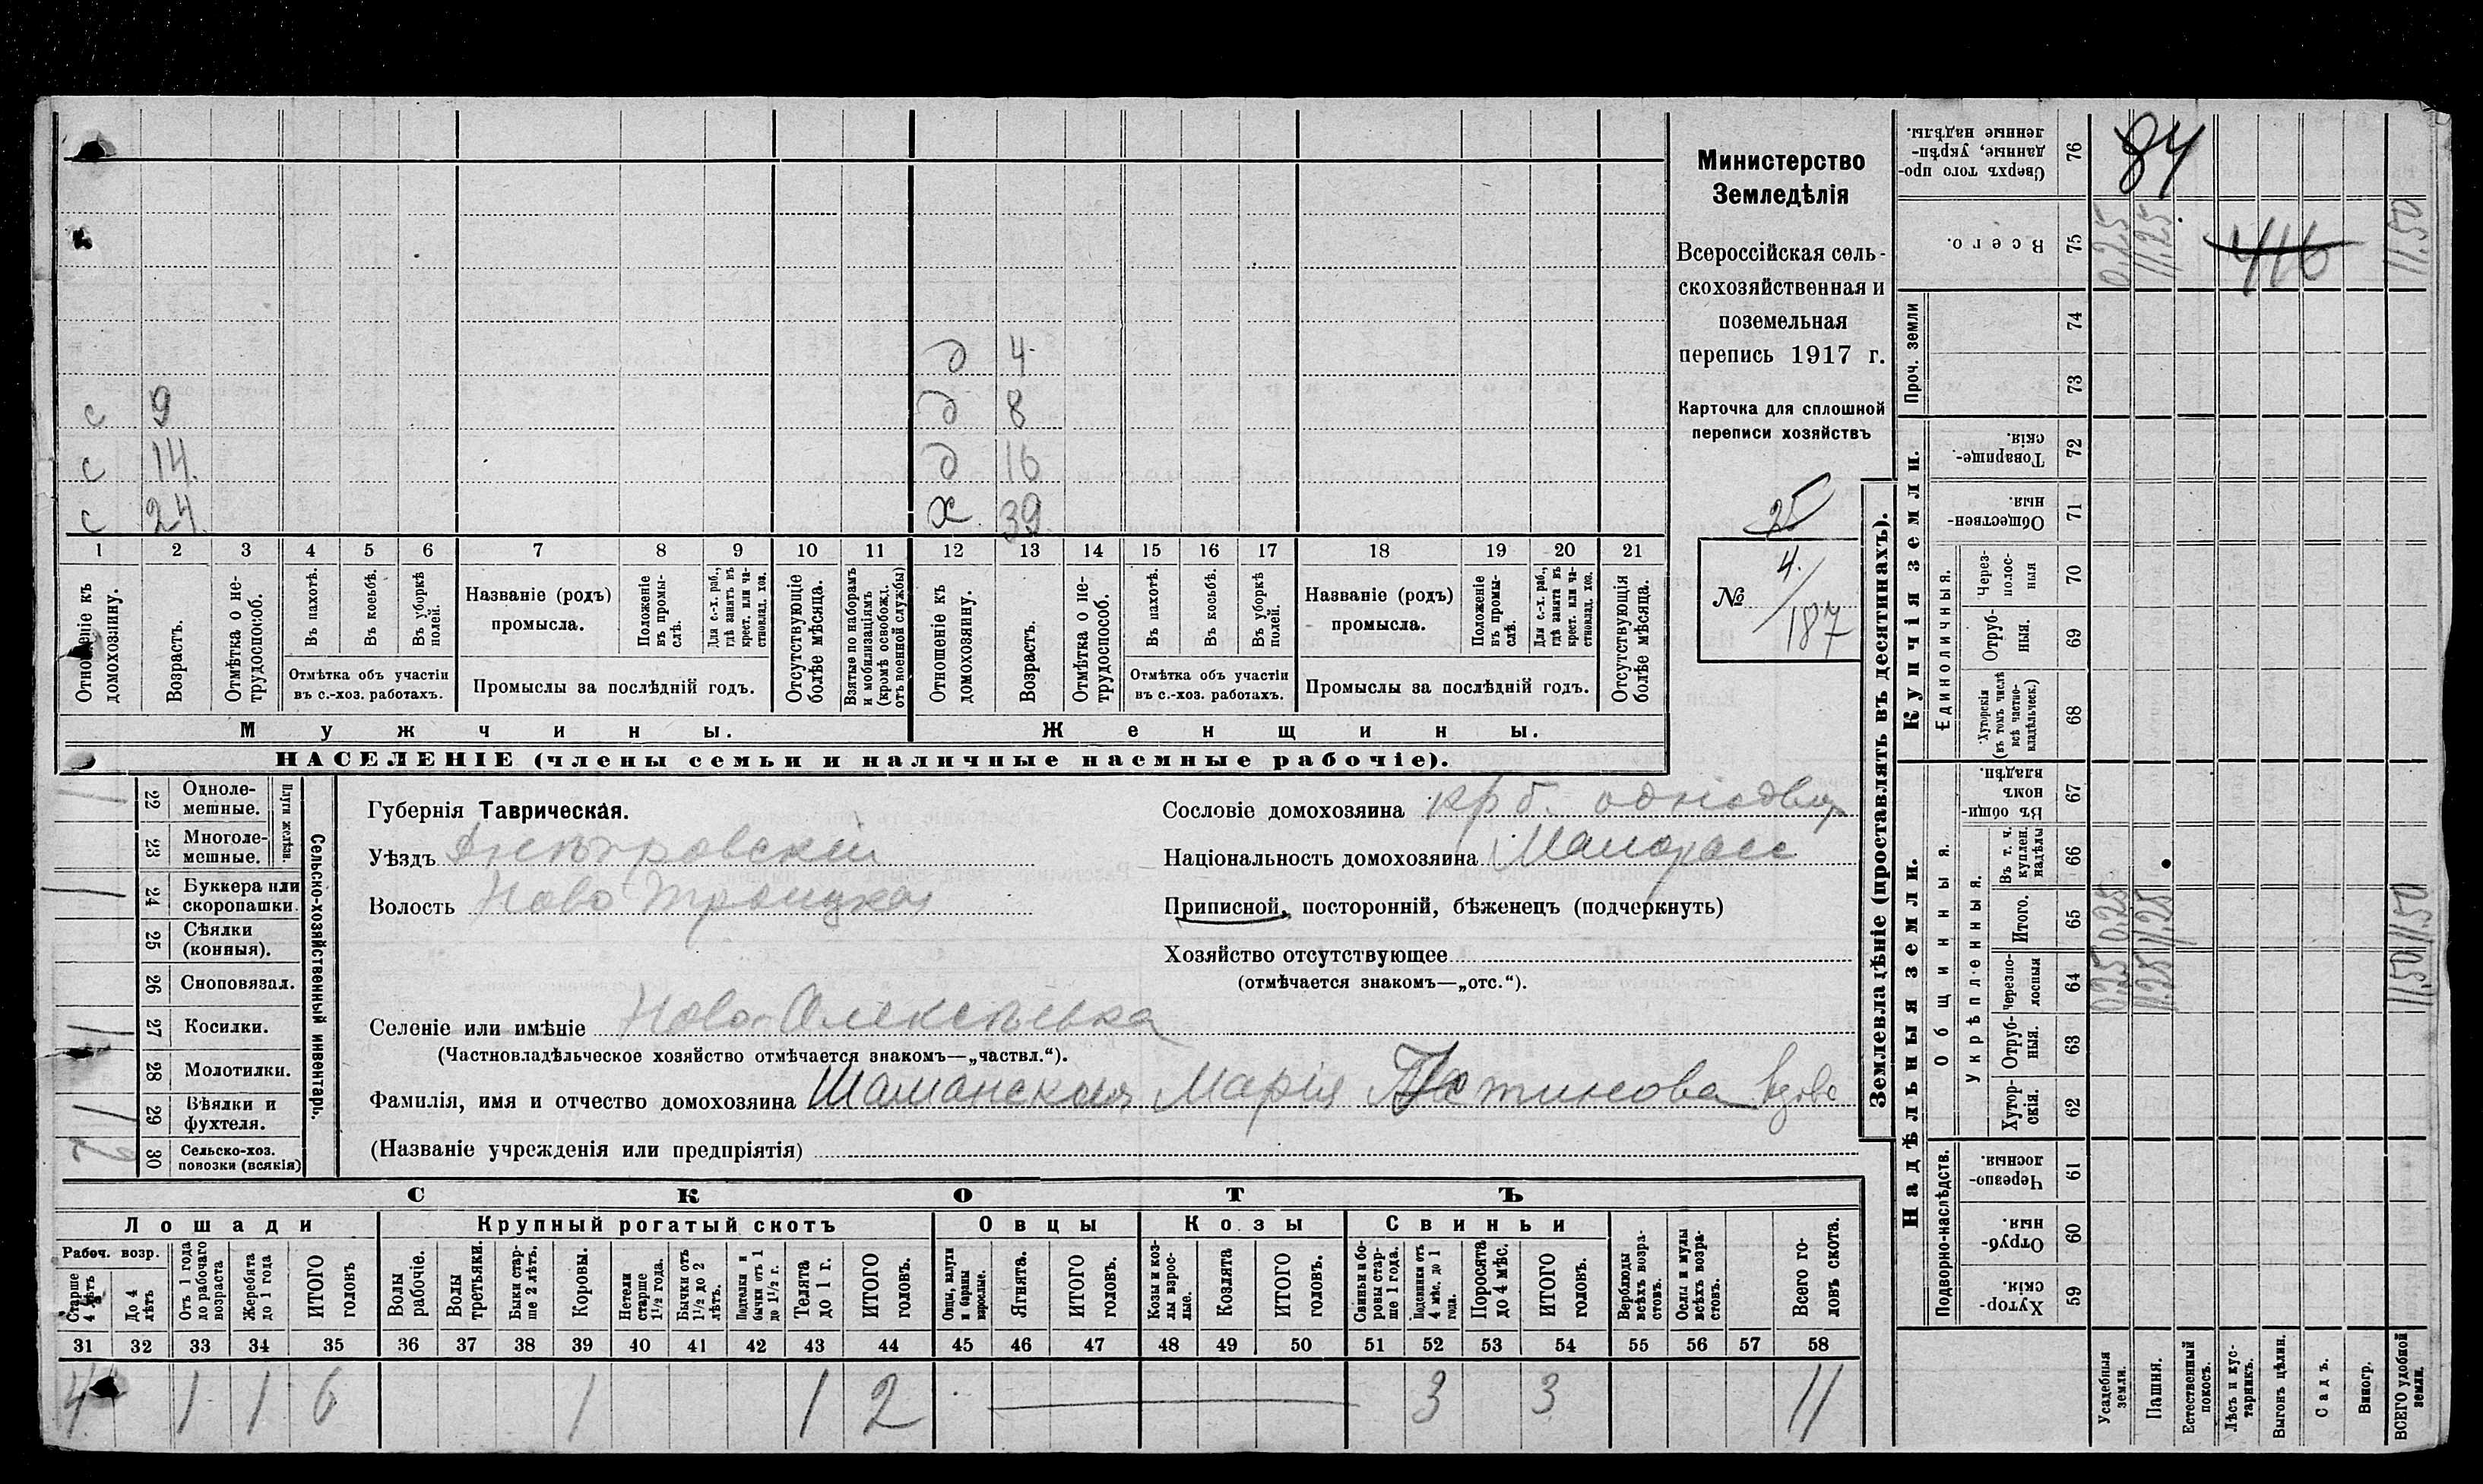 д 4
с 9 д 8
с 14 д 16
с 24 х 39
1 2 3 4 5 6 7 8 9 10 11 12 13 14 15 16 17 18 19 20 21
Отношеніе къ домохозяину.
Возрастъ.
Отмѣтка о не-трудоспособ.
Въ пахотѣ.
Въ косьбѣ.
Въ уборкѣ полей.
Отмѣтка объ участіи
въ с.-хоз. работахъ.
Названіе (родъ)
промысла.
Положеніе въ промы-слѣ.
Для с.-х. раб., гдѣ занятъ въ крест. или ча-стновлад. хоз.
Промыслы за послѣдній годъ.
Отсутствующіе болѣе мѣсяца.
Взятые по наборамъ и мобилизаціямъ (кромѣ освобожд. отъ военной службы)
Отношеніе къ домохозяину.
Возрастъ.
Отмѣтка о не-трудоспособ.
Въ пахотѣ.
Въ косьбѣ.
Въ уборкѣ полей.
Отмѣтка объ участіи
въ с.-хоз. работахъ.
Названіе (родъ)
промысла.
Положеніе въ промы-слѣ.
Для с.-х. раб., гдѣ занята въ крест. или ча-стновлад. хоз.
Промыслы за послѣдній годъ.
Отсутствующія болѣе мѣсяца.
Мужчины.
Женщины.
НАСЕЛЕНІЕ (члены семьи и наличные наемные рабочіе).
Министерство
Земледѣлія
Всероссійская сель-
скохозяйственная и
поземельная
перепись 1917 г.
Карточка для сплошной
переписи хозяйствъ
25
№ 4./187
22 Однолемешные.
23 Многолемешные.
Плуги желѣзн.
24 Буккера или скоропашки.
25 Сѣялки (конныя).
26 Сноповязал.
27 Косилки. 1
28 Молотилки.
29 Вѣялки и фухтеля. 1
30 Сельско-хоз. повозки (всякія)
Сельско-хозяйственный инвентарь.
Губернія Таврическая.
Уѣздъ Днѣпровскій
Волость Ново Троицкая
Сословіе домохозяина кр б.
Національность домохозяина Малоросс
Приписной, посторонній, бѣженецъ (подчеркнуть)
Хозяйство отсутствующее
(отмѣчается знакомъ—„отс.“).
Селеніе или имѣніе Ново-Олексѣевка
(Частновладѣльческое хозяйство отмѣчается знакомъ—„частвл.“).
Фамилія, имя и отчество домохозяина Шаманская Марія вдова
(Названіе учрежденія или предпріятія)
СКОТЪ
Лошади Крупный рогатый скотъ Овцы Козы Свиньи
Рабоч. возр.
Старше 4 лѣтъ
До 4 лѣтъ
Отъ 1 года до рабочаго возраста
Жеребята до 1 года
ИТОГО головъ
Волы рабочіе.
Волы третьяки.
Быки старше 2 лѣтъ.
Коровы.
Нетели старше 1½ года.
Бычки отъ 1½ до 2 лѣтъ.
Подтелки и бычки отъ 1 до 1½ г.
Телята до 1 г.
ИТОГО головъ.
Овцы, валухи и бараны взрослые.
Ягнята.
ИТОГО головъ.
Козы и козлы взрослые.
Козлята
ИТОГО головъ.
Свиньи и боровы старше 1 года.
Подсвинки отъ 4 мѣс. до 1 года.
Поросята до 4 мѣс.
ИТОГО головъ.
Верблюды всѣхъ возрастовъ.
Ослы и мулы всѣхъ возрастовъ.
Всего головъ скота.
31 32 33 34 35 36 37 38 39 40 41 42 43 44 45 46 47 48 49 50 51 52 53 54 55 56 57 58
4 1 1 6 1 1 2 3 3 11
Землевладѣніе (проставлять въ десятинахъ).
Купчія земли.
Надѣльныя земли.
Сверхъ того проданные, укрѣпленные надѣлы. 76 84
Всего. 75 0.25 11.25 416 11,50
Проч. земли 74 73
Товарищескія. 72
Общественныя. 71
Единоличныя.
Черезполосныя 70
Отрубныя. 69
Хуторскія (въ томъ числѣ всѣ частновладѣльческ.) 68
Общинныя.
Въ общинномъ владѣн. 67
Укрѣпленныя.
Въ т. ч. куплен. надѣлы 66
Итого. 65 0.25 11.25 11.50
Черезполосныя 64 0.25 11.25 11.50
Отрубныя. 63
Хуторскія. 62
Подворно-наслѣдств.
Черезполосныя. 61
Отрубныя. 60
Хуторскія. 59
Усадебныя земли.
Пашня.
Естественный покосъ.
Лѣсъ и кустарникъ.
Выгонъ цѣлин.
Садъ.
Виногр.
ВСЕГО удобной земли.